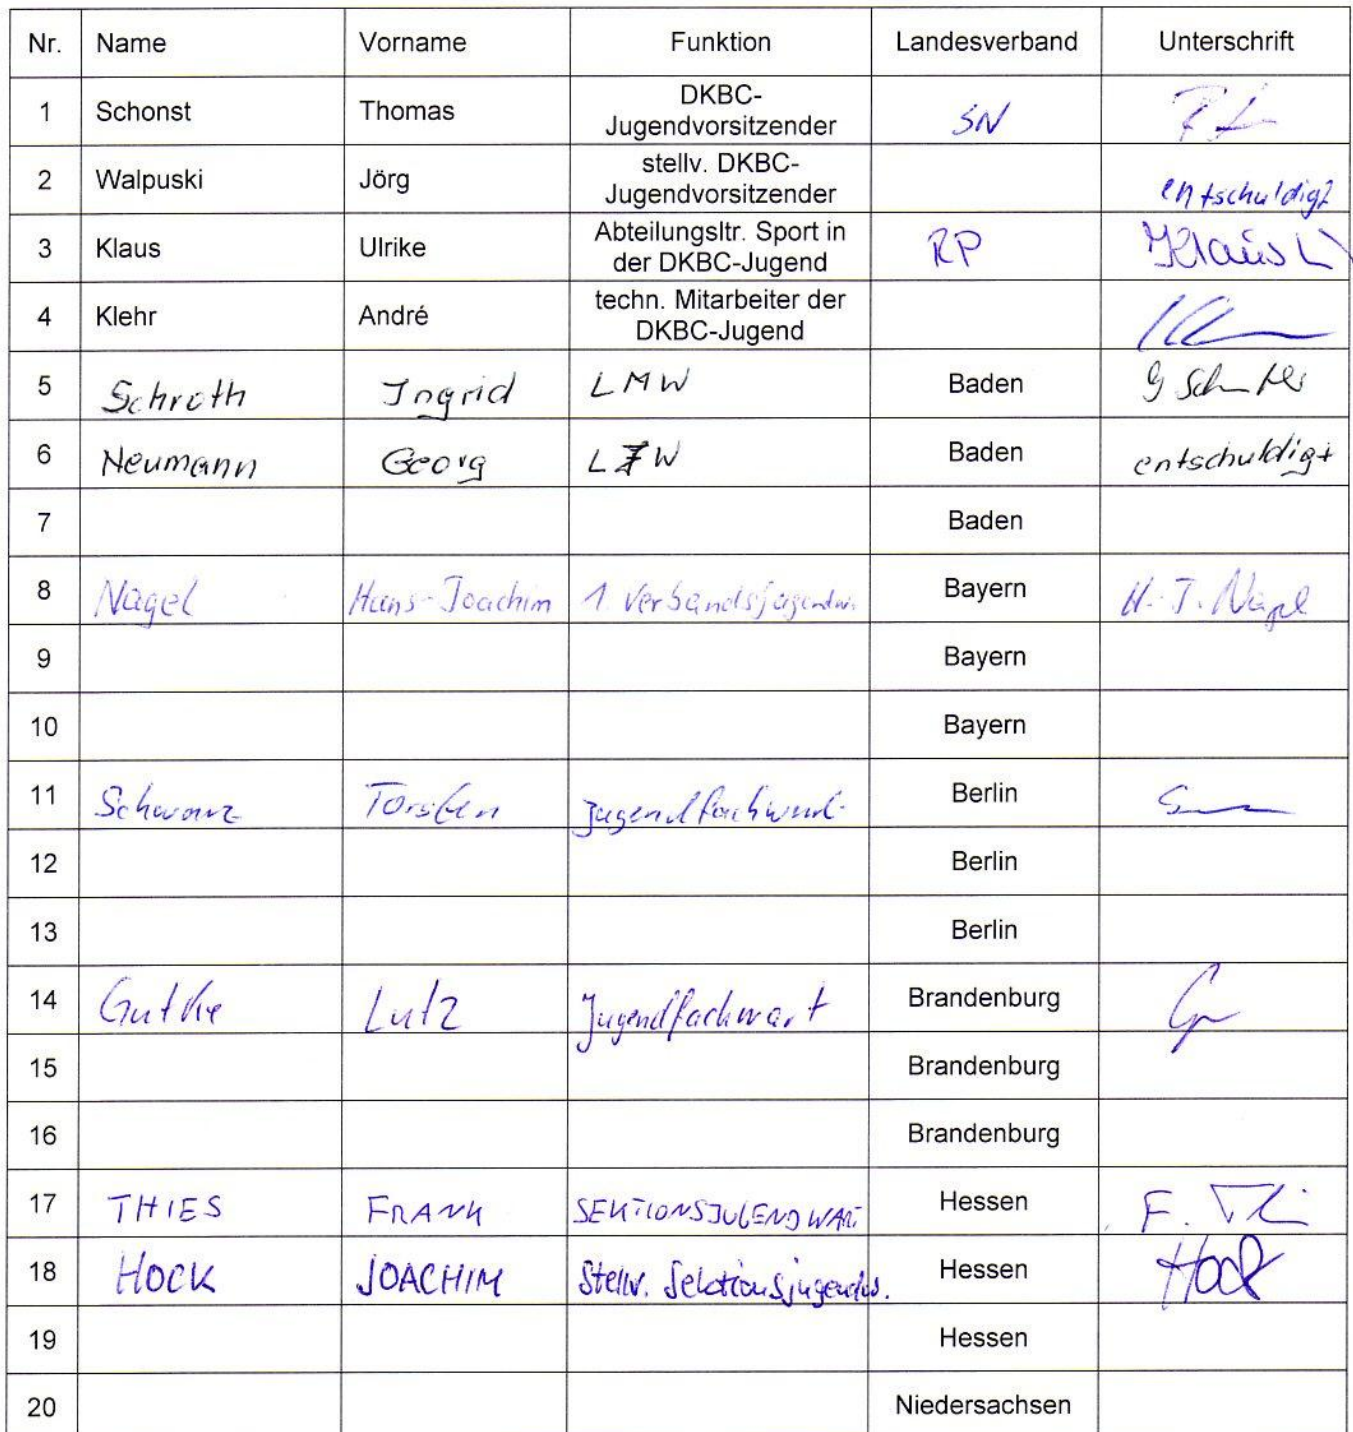 Nr. Name Vorname Funktion Landesverband Unterschrift
1 Schonst Thomas DKBC-
Jugendvorsitzender SN
2 Walpuski Jörg stellv. DKBC-
Jugendvorsitzender entschuldigt
3 Klaus Ulrike Abteilungsltr. Sport in
der DKBC-Jugend RP Klaus U
4 Klehr André techn. Mitarbeiter der
DKBC-Jugend
5 Schroth Ingrid LMW Baden
6 Neumann Georg Baden entschuldigt
7 Baden
8 Nagel Hans-Joachim 1. Verbandsjugendw. Bayern H.-J. Nagel
9 Bayern
10 Bayern
11 Schwarz Torsten Jugendfachwart Berlin
12 Berlin
13 Berlin
14 Guthke Lutz Jugendfachwart Brandenburg
15 Brandenburg
16 Brandenburg
17 THIES FRANK SEKTIONSJUGENDWART Hessen F.
18 HOCK JOACHIM Stellv. Sektionsjugendw. Hessen Hock
19 Hessen
20 Niedersachsen